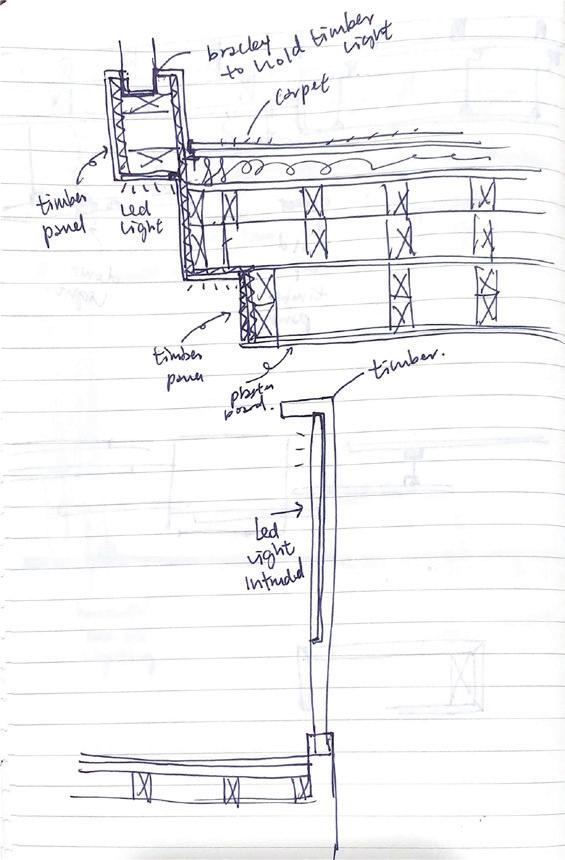 bracket
to hold timber
light
carpet
timber
panel
Led
light
timber
panel
plaster
board.
timber.
Led
light
Intruded